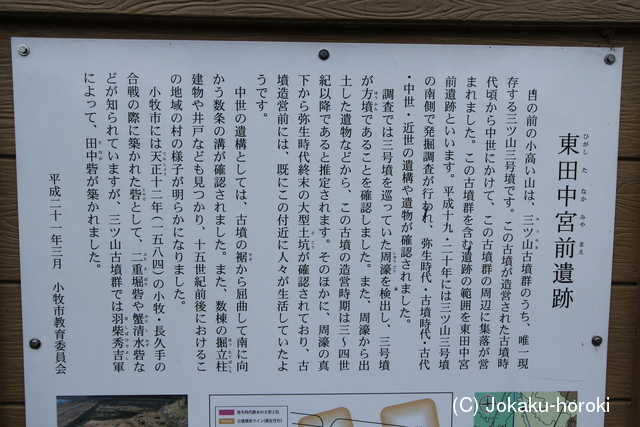 東田中宮前遺跡
ひがし た なか みや まえ
目の前の小高い山は、三ツ山古墳群のうち、唯一現
存する三ツ山三号墳です。この古墳が造営された古墳時
代頃から中世にかけて、この古墳群の周辺に集落が営
まれました。この古墳群を含む遺跡の範囲を東田中宮
前遺跡といいます。平成十九・二十年には三ツ山三号墳
の南側で発掘調査が行われ、弥生時代・古墳時代・古代
・中世・近世の遺構や遺物が確認されました。
調査では三号墳を巡っていた周濠を検出し、三号墳
が方墳であることを確認しました。また、周濠から出
土した遺物などから、この古墳の造営時期は三～四世
紀以降であると推定されます。そのほかに、周濠の真
下から弥生時代終末の大型土坑が確認されており、古
墳造営前には、既にこの付近に人々が生活していたよ
うです。
中世の遺構としては、古墳の裾から屈曲して南に向
かう数条の溝が確認されました。また、数棟の掘立柱
建物や井戸なども見つかり、十五世紀前後におけるこ
の地域の村の様子が明らかになりました。
小牧市には天正十二年（一五八四）の小牧・長久手の
合戦の際に築かれた砦として、二重堀砦や蟹清水砦な
どが知られていますが、三ツ山古墳群では羽柴秀吉軍
によって、田中砦が築かれました。
平成二十一年三月　小牧市教育委員会
弥生時代終末の大型土坑
(C) Jokaku-horoki